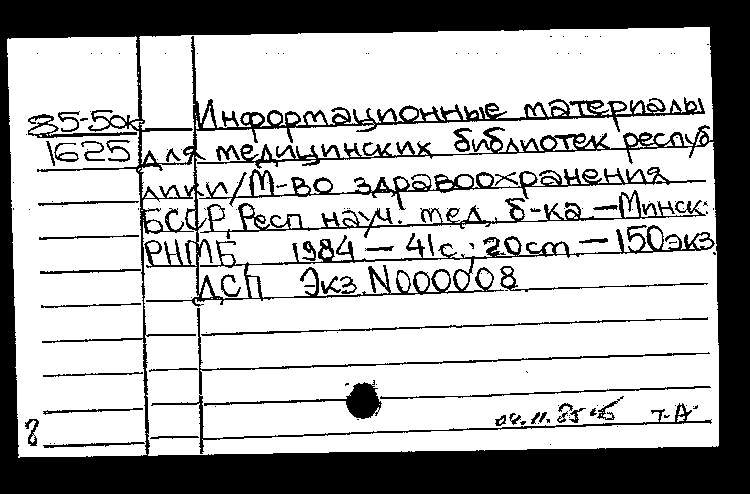 85-5ок Информационные материалы
1625 для медицинских библиотек респуб
лики/М-во здравоохранения
БССР, Респ науч. мед. б-ка —Минск:
РНМБ, 1984 — 41с.; 20cm. — 150экз.
ДСП Экз. N000008
04.11.85 т.А.
8